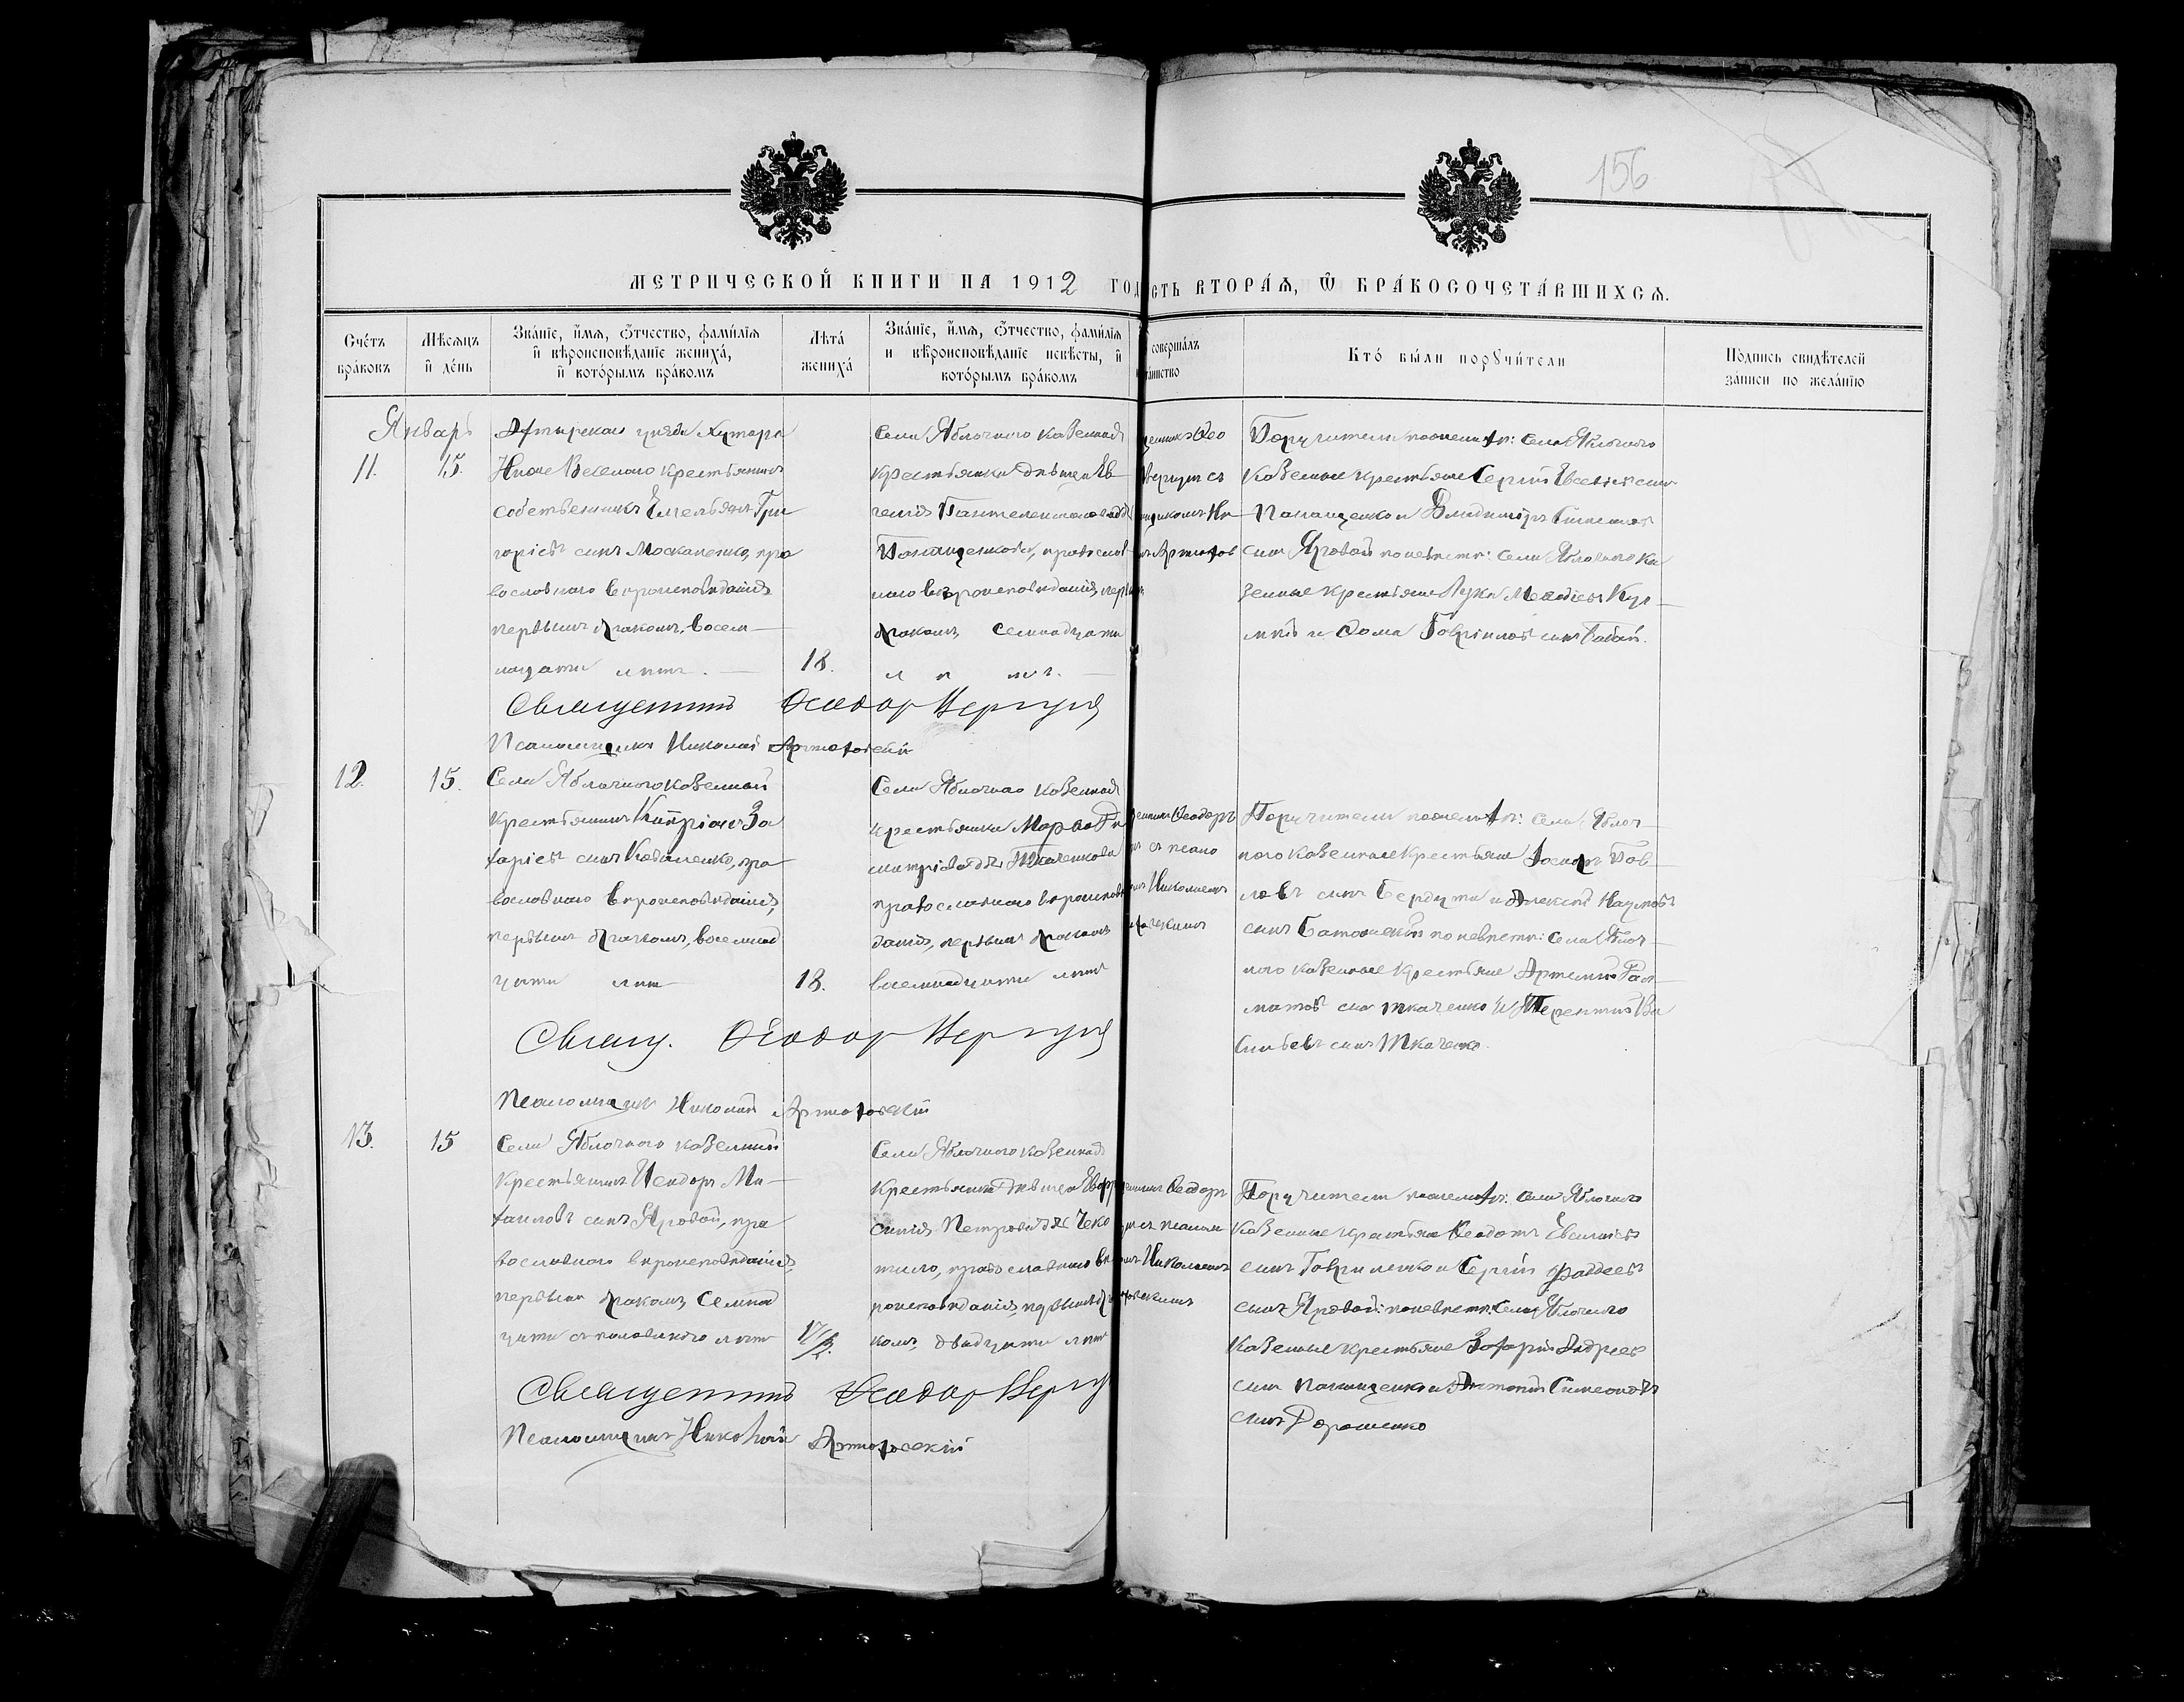 156
МЕТРИЧЕСКОЙ КНИГИ НА 1912 ГОД
СТЬ ВТОРАЯ, Ѿ БРАКОСОЧЕТАВШИХСЯ.
Счетъ браковъ
Мѣсяцъ и день
Званіе, имя, отчество, фамилія
и вѣроисповѣданіе жениха,
и которымъ бракомъ
Лѣта жениха
Званіе, имя, отчество, фамилія
и вѣроисповѣданіе невѣсты, и
которымъ бракомъ
совершалъ
таинство
Кто были поручители
Подпись свидѣтелей
записи по желанію
Январь
11.
15.
Ахтырскаго уѣзда Хутора
Веселаго крестьянинъ
собственникъ Емельянъ Гри
горіевъ сынъ Москаленко, пра
вославнаго вѣроисповѣданія
первымъ бракомъ, восем
надцати лѣтъ.
18.
Села Яблочнаго казенная
крестьянка дѣвица Ев
генія Пантелеимонова
Понамаренкова, православ
наго вѣроисповѣданія, пер
бракомъ, семнадцати
лѣтъ.
щенникъ Ѳео
Вергунъ съ
щикомъ Ни
Артюхов
Поручители по женихѣ: села Яблочнаго
казенные крестьяне Сергій Евсеіевъ сынъ
и Владиміръ
сынъ Яровой по невѣстѣ: села Яблочнаго ка
зенные крестьяне Лука
и Ѳома Гавріиловъ сынъ Бабай.
Священникъ Ѳеодоръ Вергунъ
Псаломщикъ Николай Артюховскій
12.
15.
Села Яблочнаго казенный
крестьянинъ Кипріанъ За
харіевъ сынъ Коваленко, пра
вославнаго вѣроисповѣданія,
первымъ бракомъ, восемнад
цати лѣтъ
18.
Села Яблочнаго казенная
крестьянка Марѳа Ди
митріева Ткаченкова
православнаго вѣроисповѣ
данія, первымъ бракомъ
восемнадцати лѣтъ
щенникъ Ѳеодоръ
съ псало
Николаемъ
Поручители по женихѣ: села Яблоч
наго казенные крестьяне Іосифъ Пав
ловъ сынъ Бердута и Алексій Наумовъ
сынъ по невѣстѣ: села Яблоч
наго казенные крестьяне Артемій
сынъ Ткаченко и Терентій Ва
сильевъ сынъ Ткаченко.
Свящ. Ѳеодоръ Вергунъ
Псаломщикъ Николай Артюховскій
13.
15
Села Яблочнаго казенный
крестьянинъ Ѳеодоръ Ми
хаиловъ сынъ Яровой, пра
вославнаго вѣроисповѣданія,
первымъ бракомъ, семнад
цати съ половиною лѣтъ
17½.
Села Яблочнаго казенная
крестьянка дѣвица Евфро
синія Петрова
православнаго вѣ
роисповѣданія, первымъ бра
комъ, двадцати лѣтъ
щенникъ Ѳеодоръ
съ псалом
Николаемъ
Поручители по женихѣ: села Яблочнаго
казенные крестьяне Ѳеодотъ
сынъ Гавриленко и Сергій Фаддеевъ
сынъ Яровой: по невѣстѣ: села Яблочнаго
казенные крестьяне Захарій Андреевъ
сынъ и Антоній Симеоновъ
сынъ Дорошенко
Священникъ Ѳеодоръ Вергунъ
Псаломщикъ Николай Артюховскій